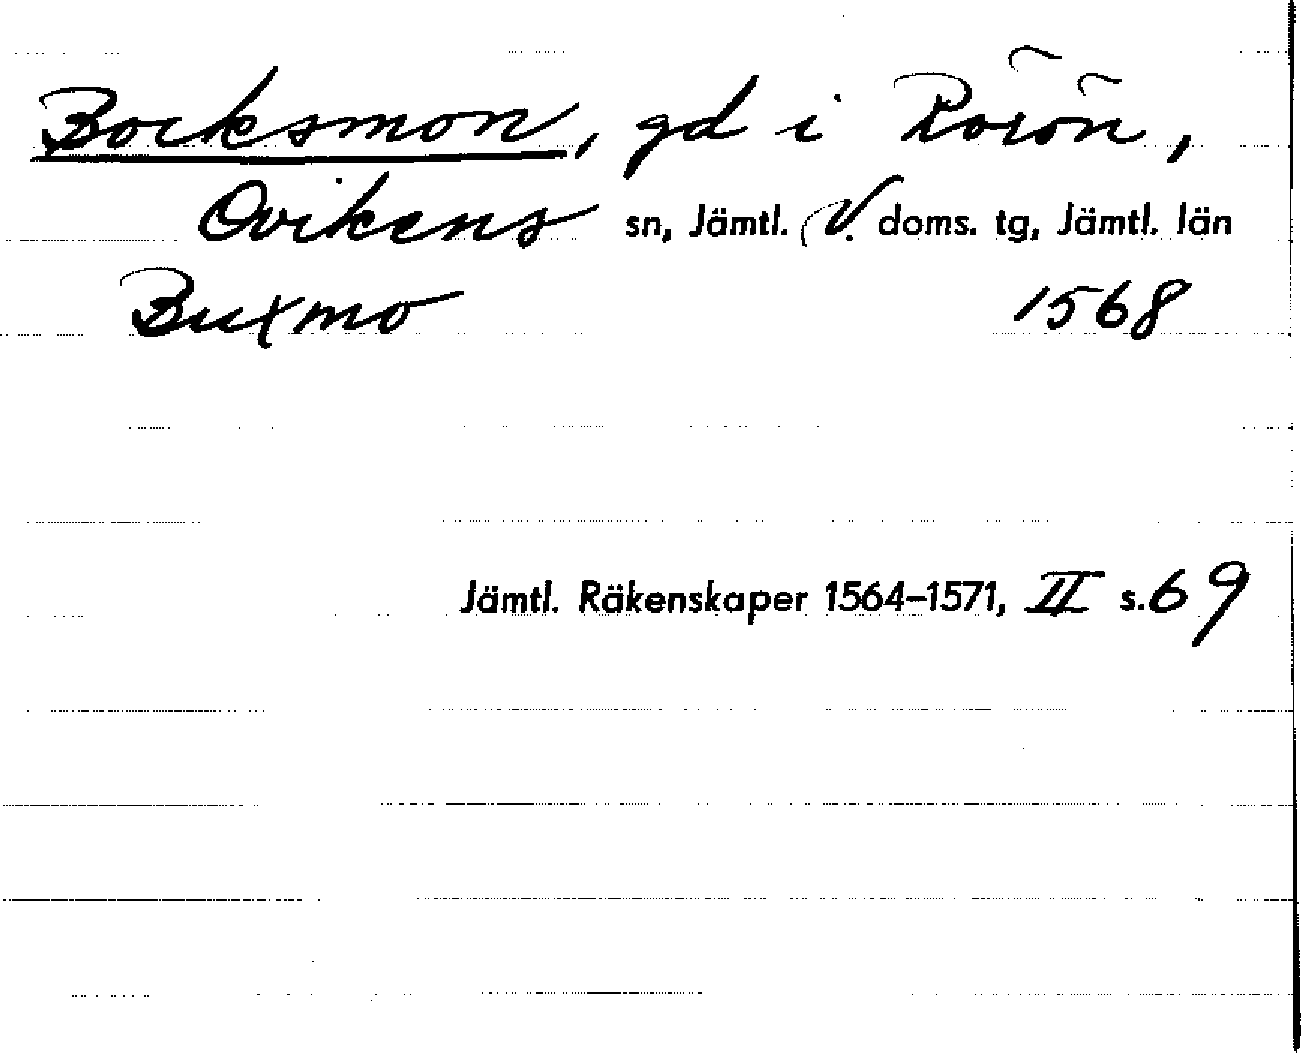 Bocksmon, gd i Rörön,
Ovikens sn, Jämtl. V. doms. tg, Jämtl. län
Buxmo 1568
Jämtl. Räkenskaper 1564-1571, II s. 69